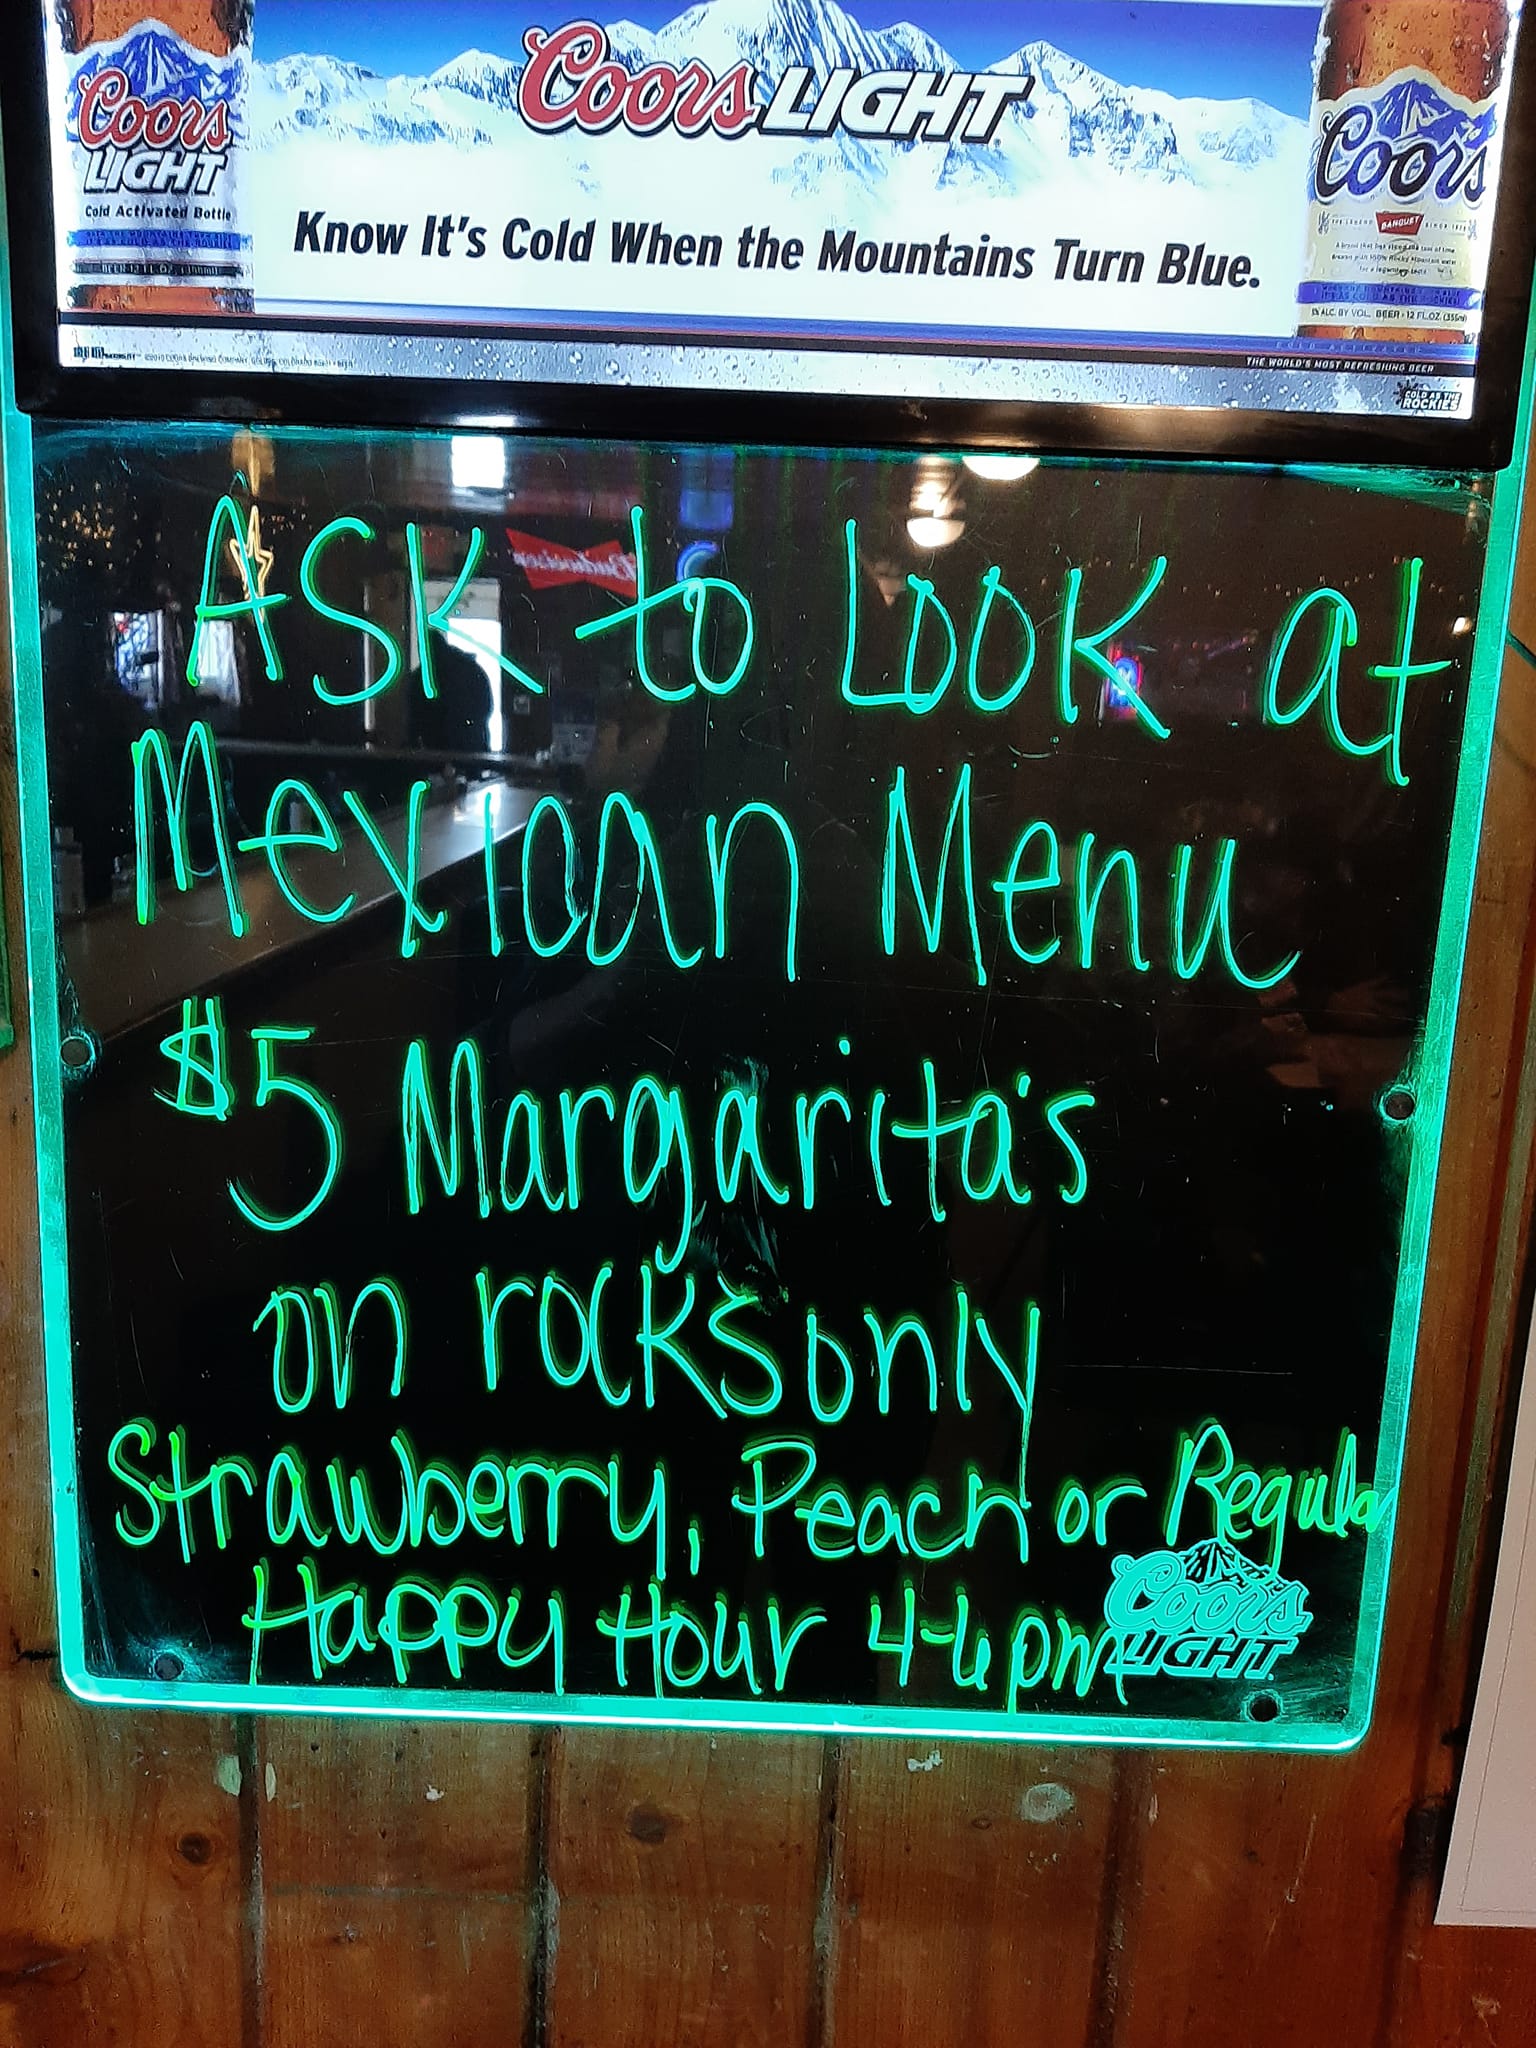 Coors LIGHT
Coors
LIGHT
Cold Activated Bottle
Coors
BANQUET
Know It's Cold When the Mountains Turn Blue.
5% ALC. BY VOL. BEER • 12 FL.OZ. (355ml)
THE WORLD'S MOST REFRESHING BEER
COLD AS THE
ROCKIES
Budweiser
ASK to Look at
Mexican Menu
$5 Margarita's
on rocks only
Strawberry, Peach or Regular
Happy Hour 4-6pm
Coors
LIGHT